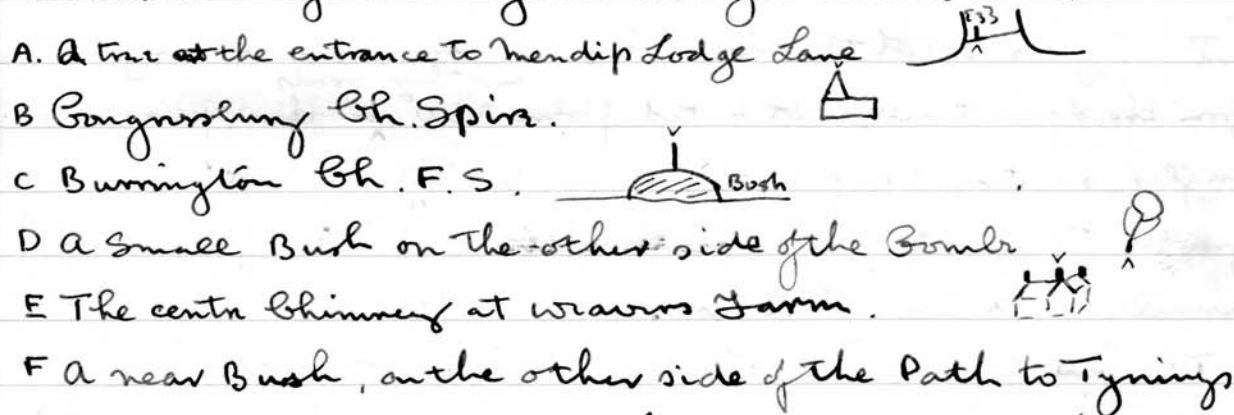 A. A tree at the entrance to Mendip Lodge Lane
B Congresbury Ch. Spire.
C Burrington Ch. F.S. Bush
D a Small Bush on the other side of the Combe
E The centre Chimney at weavers Farm.
F a near Bush, on the other side of the Path to Tynings